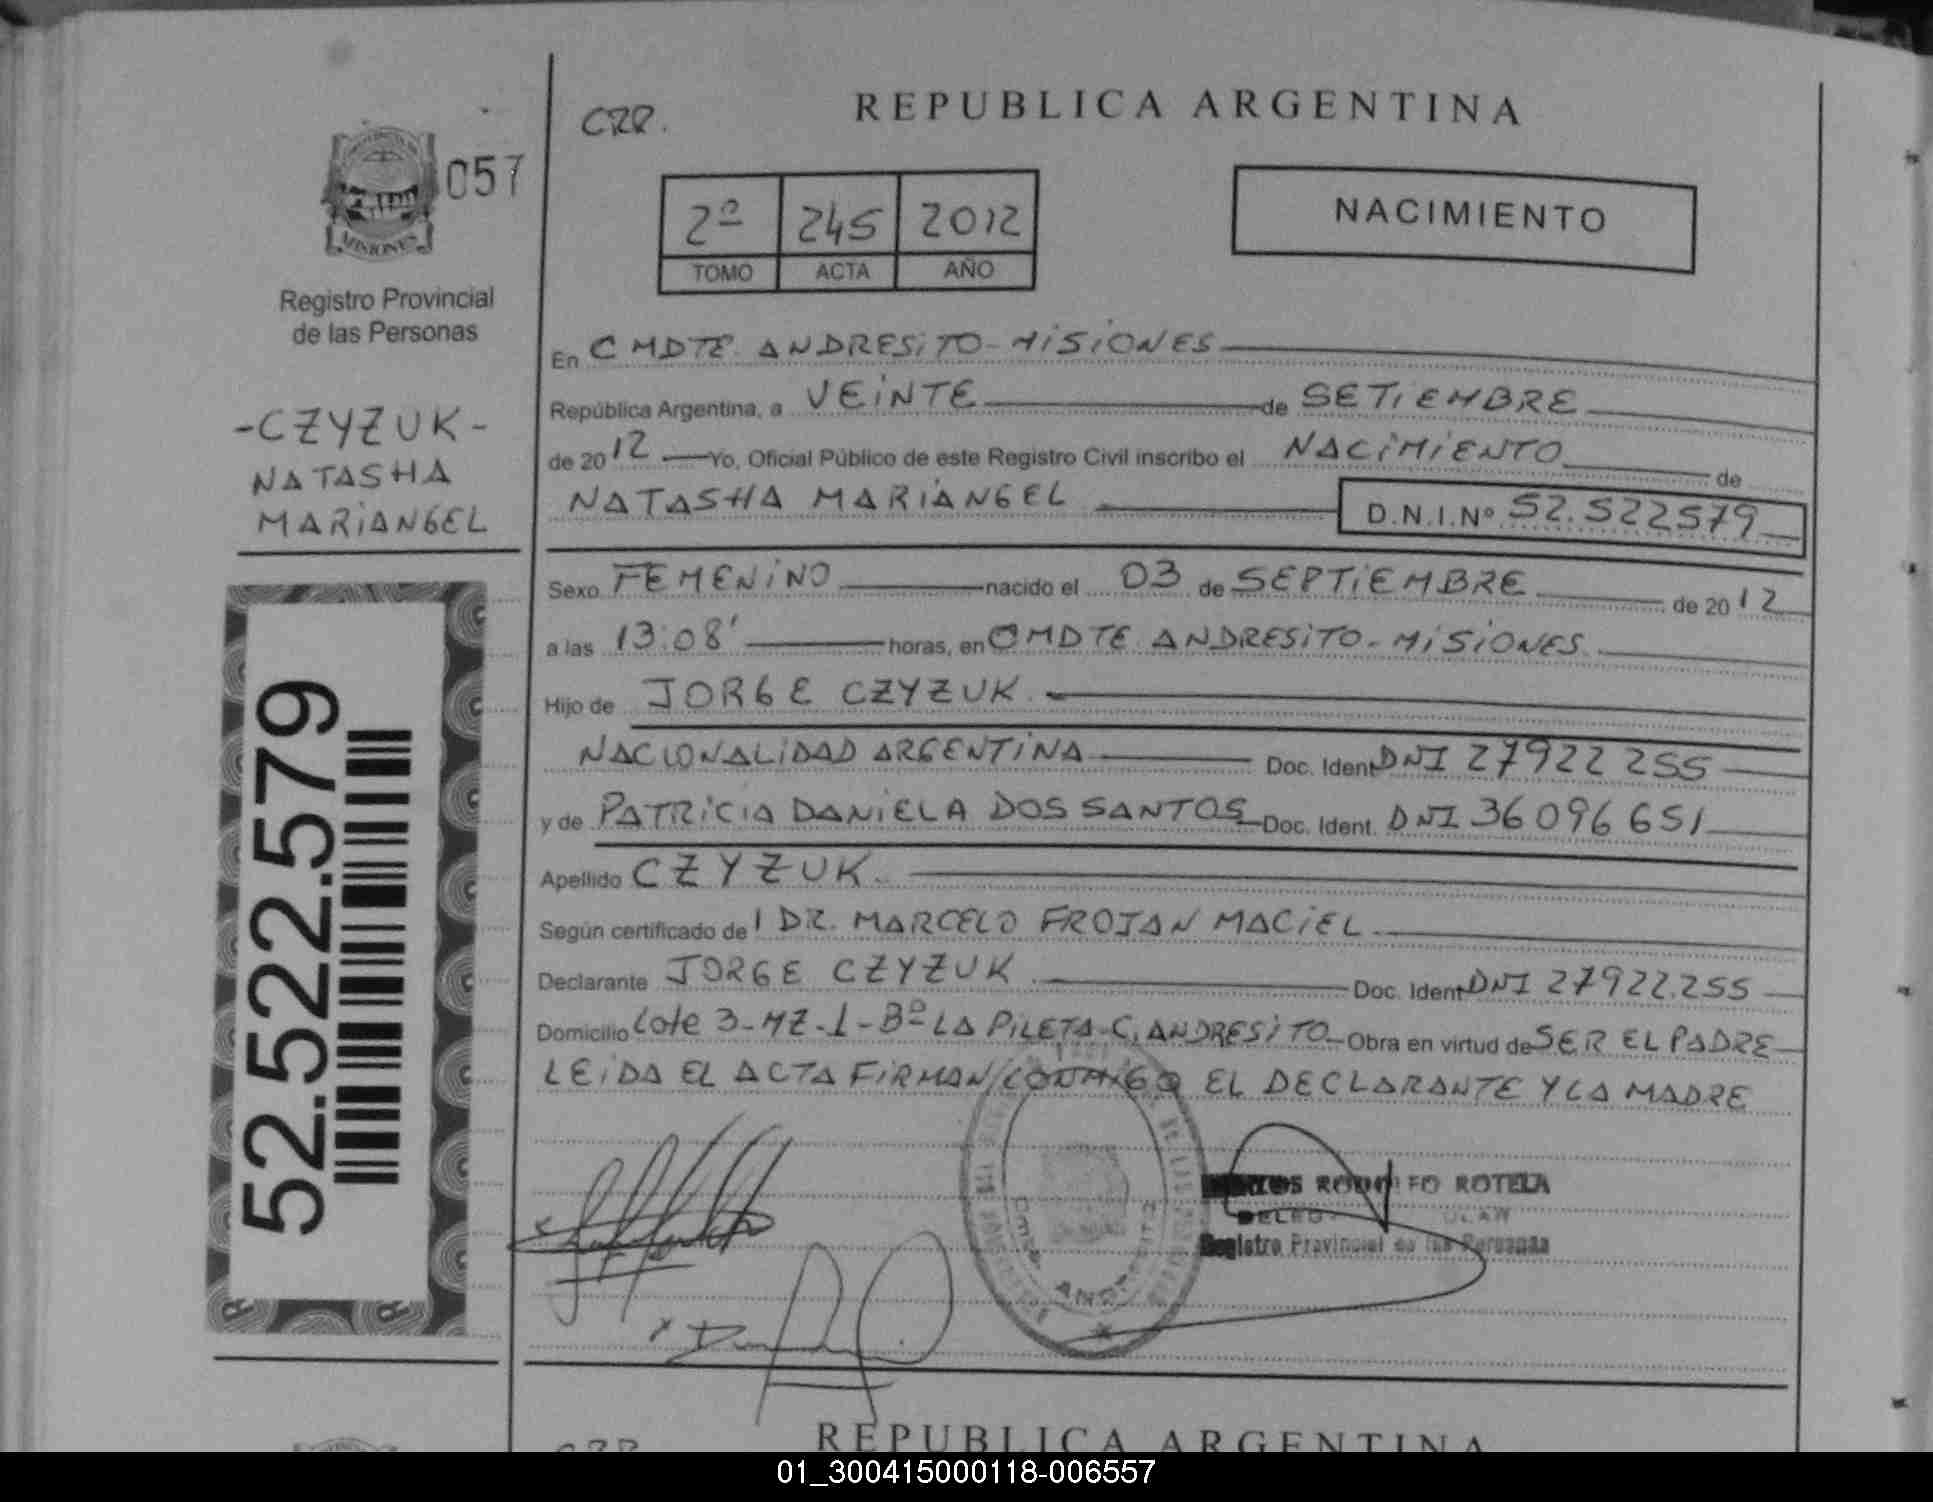 CRR.
REPUBLICA ARGENTINA
057
MISIONES
Registro Provincial
de las Personas
2º 245 2012
TOMO ACTA AÑO
NACIMIENTO
-CZYZUK-
NATASHA
MARIANGEL
52.522.579
En CMDTE. ANDRESITO - MISIONES
República Argentina, a VEINTE de SETIEMBRE
de 2012 Yo, Oficial Público de este Registro Civil inscribo el NACIMIENTO de
NATASHA MARIANGEL D.N.I.Nº 52.522579
Sexo FEMENINO nacido el 03 de SEPTIEMBRE de 2012
a las 13:08' horas, en CMDTE. ANDRESITO - MISIONES
Hijo de JORGE CZYZUK
NACIONALIDAD ARGENTINA Doc. Ident DNI 27922 255
y de PATRICIA DANIELA DOS SANTOS Doc. Ident. DNI 36096651
Apellido CZYZUK
Según certificado del DR. MARCELO FROJAN MACIEL
Declarante JORGE CZYZUK Doc. Ident DNI 27922.255
Domicilio Lote 3-MZ-L-Bº LA PILETA-C. ANDRESITO Obra en virtud de SER EL PADRE
LEIDA EL ACTA FIRMAN CONMIGO EL DECLARANTE Y LA MADRE
ROTELA
Registro Provincial de las Personas
REPUBLICA ARGENTINA
01_300415000118-006557